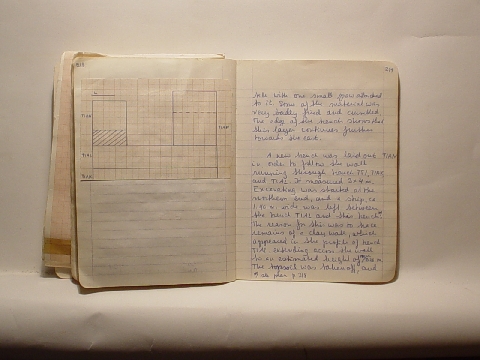 218
T1AK
T1AM
T1AL
219
side with one small
to it. Some of the material was
very badly fired and crumbled.
The edge of the trench shows that
this layer continues further
towards the east.
A new trench was laid out T1AM
in order to follow the wall
running through trench T1AK
and T1AL. It measured
Excavating was started at the
northern end, and a strip, ca
1.40 m. wide was left between
the trench T1AL and this trench
The reason for this was to save
remains of a clay wall, which
appeared in the profile of trench
T1AL extending across the wall
to an estimated height of m
The topsoil was taken off, and
* see plan p 218